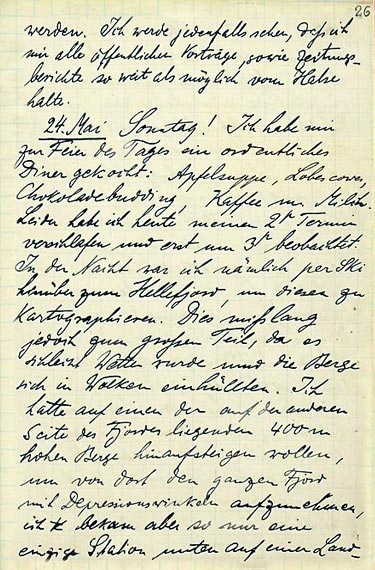 26
werden. Ich werde jedenfalls sehen, daß ich
mir alle öffentlichen Vorträge, sowie Zeitungs-
berichte so weit als möglich vom Halse
halte.
24. Mai Sonntag! Ich habe mir
zur Feier des Tages ein ordentliches
Diner gekocht: Apfelsuppe, Labescoves,
Chokoladebudding, Kaffee m. Milch.
Leider habe ich heute meinen 2ᵗ Termin
verschlafen und erst um 3ʰ beobachtet.
In der Nacht war ich nämlich per Ski
herüber zum Hellefjord, um diesen zu
Kartographieren. Dies mißlang
jedoch zum großen Teil, da es
schlecht Wetter wurde und die Berge
sich in Wolken einhüllten. Ich
hatte auf einen der auf der anderen
Seite des Fjordes liegenden 400m
hohen Berge hinaufsteigen wollen,
um von dort den ganzen Fjord
mit Depressionswinkeln aufzunehmen,
ich bekam aber so nur eine
einzige Station unten auf einer Land-